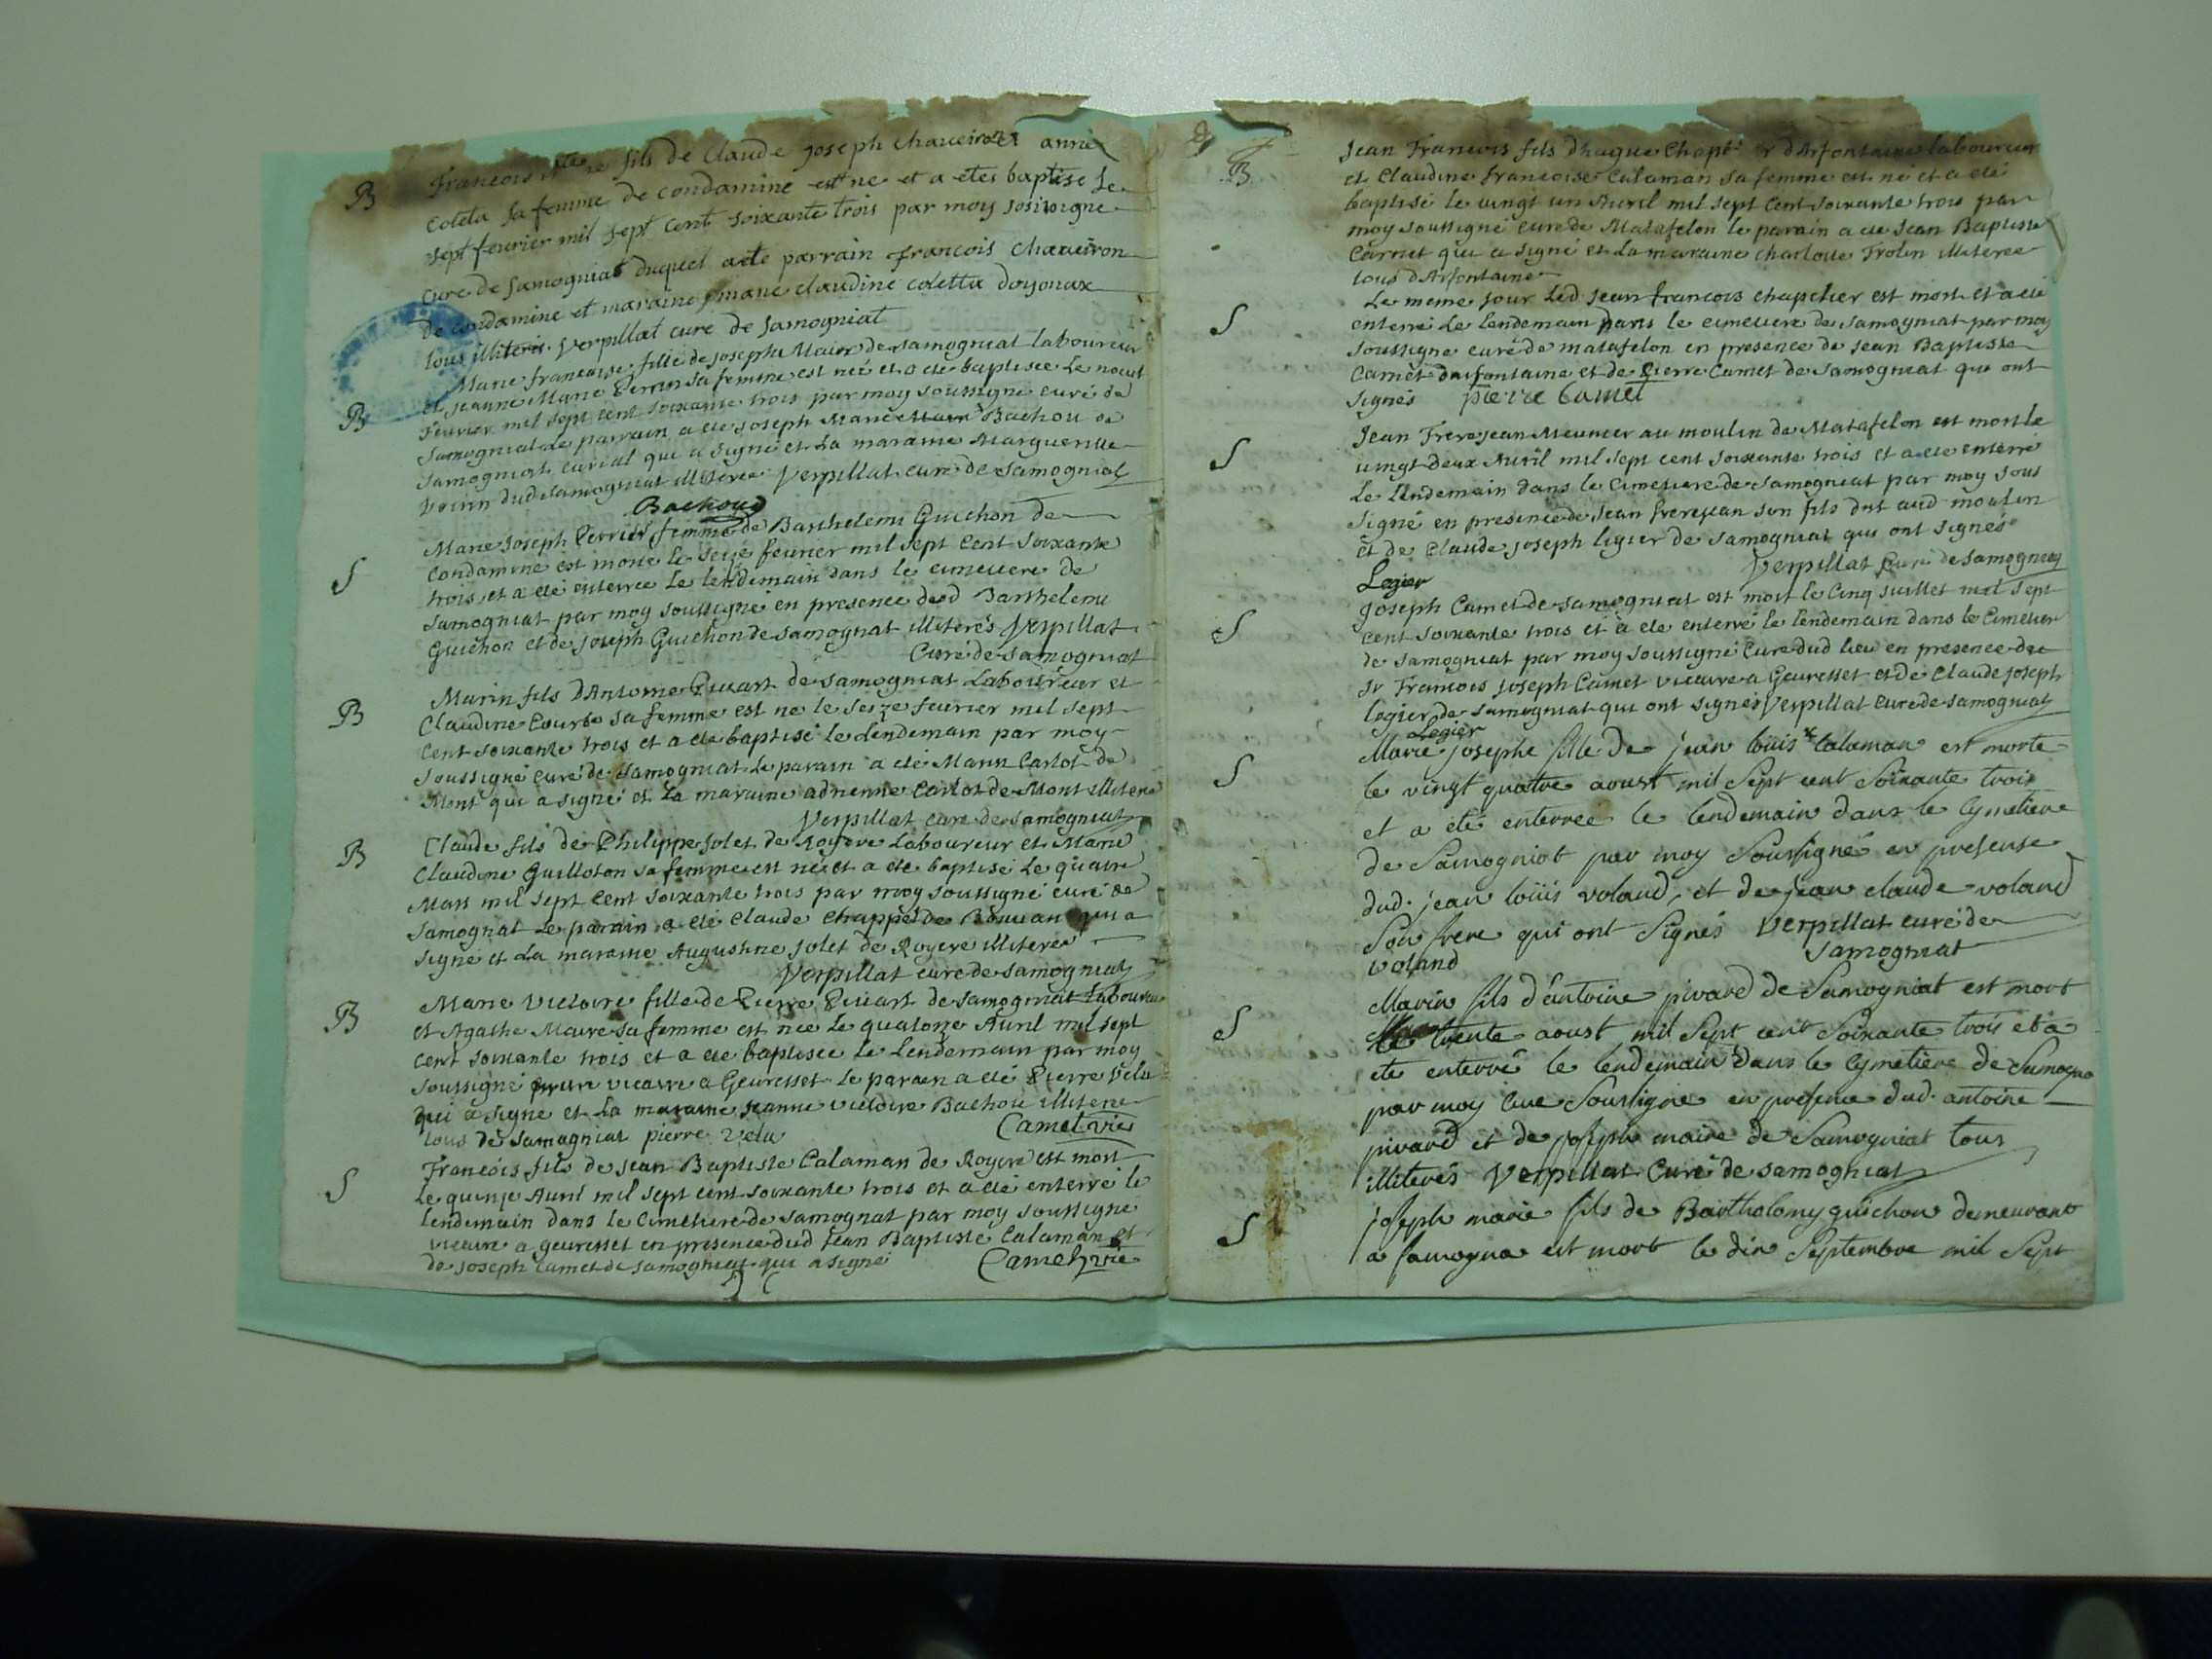 B
francois fils de Claude joseph chaveiron et anne
coleta sa femme de condamine est ne et a etes baptise le
sept fevrier mil sept cent soixante trois par moy sosigne
cure de samogniat duquel a ete parrain francois chaveiron
de condamine et maraine mane claudine coletta doyonax
tous illiteres. Verpillat cure de samogniat
B
Marie francoise fille de joseph Maire de samogniat laboureur
et jeanne Marie Perrin sa femme est née et a eté baptisée le neuf
fevrier mil sept cent soixante trois par moy soussigné curé de
samogniat le parrain a eté joseph Marie Bachou de
samogniat curial qui a signé et la maraine Marguerite
dud samogniat illiterée Verpillat curé de samogniat
Bachoud
S
Marie joseph Perrier femme de Barthelemi Guichon de
condamine est morte le seije fevrier mil sept cent soixante
trois et a eté enterrée le lendemain dans le cimetiere de
samogniat par moy soussigné en presence dud Barthelemi
Guichon et de joseph Guichon de samogniat illiterés Verpillat
Curé de samogniat
B
Marin fils d'Antoine Pivart de samogniat Laboureur et
Claudine Courbe sa femme est ne le seize fevrier mil sept
cent soixante trois et a ete baptisé le lendemain par moy
soussigné curé de samogniat le parain a eté Marin Carlot de
Mont qui a signé et la maraine adrienne Carlot de Mont illiteré
Verpillat cure de samogniat
B
Claude fils de Philippe jolet de Royere Laboureur et Marie
Claudine Guilloton sa femme est né et a eté baptisé Le quatre
Mars mil sept cent soixante trois par moy soussigné curé de
samogniat Le parain a eté Claude Chappel de qui a
signé et La maraine Augustine jolet de Royere illiteree
Verpillat cure de samogniat
B
Marie Victoire fille de Pierre Pivart de samogniat Laboureur
et Agathe Maire sa femme est née Le quatorze Avril mil sept
cent soixante trois et a ete baptisée le lendemain par moy
soussigné vicaire a Geuresset le parain a eté Pierre Velu
qui a signé et la maraine jeanne victoire Bachou illiteree
tous de samogniat pierre velu Camet vic
S
francois fils de jean Baptiste Calaman de Royere est mort
Le quinje Avril mil sept cent soixante trois et a eté enterré le
lendemain dans le cimetiere de samogniat par moy soussigne
vicaire a geuresset en presence dud jean Baptiste Calaman et
de joseph Camet de samogniat qui a signé Camet vic
B
jean Francois fils d'hugue d'Arfontaine laboureur
et Claudine francoise Calaman sa femme est né et a eté
baptisé le vingt un Avril mil sept cent soixante trois par
moy soussigné curé de Matafelon le parain a eté jean Baptiste
Carnet qui a signé et la maraine charlotte Trolin illiteree
tous d'Arfontaine
S
Le meme jour led jean francois chapelier est mort et a eté
enterré le lendemain dans le cimetiere de samogniat par moy
soussigne curé de matafelon en presence de jean Baptiste
Camet d'arfontaine et de Pierre Camet de samogniat qui ont
signés pierre Camet
S
jean Frerejean Meunier au moulin de Matafelon est mort le
vingt deux Avril mil sept cent soixante trois et a ete enterré
Le lendemain dans le cimetiere de samogniat par moy sous
signé en presence de jean frerejean son fils dud moulin
et de Claude joseph legier de samogniat qui ont signés
Legier Verpillat Curé de samogniat
S
joseph Camet de samogniat est mort le cinq juillet mil sept
cent soixante trois et a ete enterré le lendemain dans le cimetier
de samogniat par moy soussigné Curé dud lieu en presence de
sr Francois joseph Camet vicaire a Geuresset et de Claude joseph
legier de samogniat qui ont signés Verpillat Curé de samogniat
Legier
S
Marie josephe fille de jean loüis Calaman est morte
le vingt quatre aoust mil sept cent soixante trois
et a eté enterreé le lendemain dans le cymetiere
de Samogniat par moy Soussigné en presense
dud. jean loüis voland, et de jean claude voland
Son frere qui ont Signés Verpillat curé de
voland Samogniat
S
Marin fils d'antoine pivard de Samogniat est mort
le trente aoust mil Sept cent Soixante trois et a
ete enterré le lendemain dans le cymetiere de Samogna
par moy Cure Soussigné en presence dud. antoine
pivard et de joseph maire de Samogniat tous
illiterés Verpillat Curé de samogniat
S
joseph marie fils de Bartholomy guichon demeurant
a samogna est mort le dix Septembre mil Sept